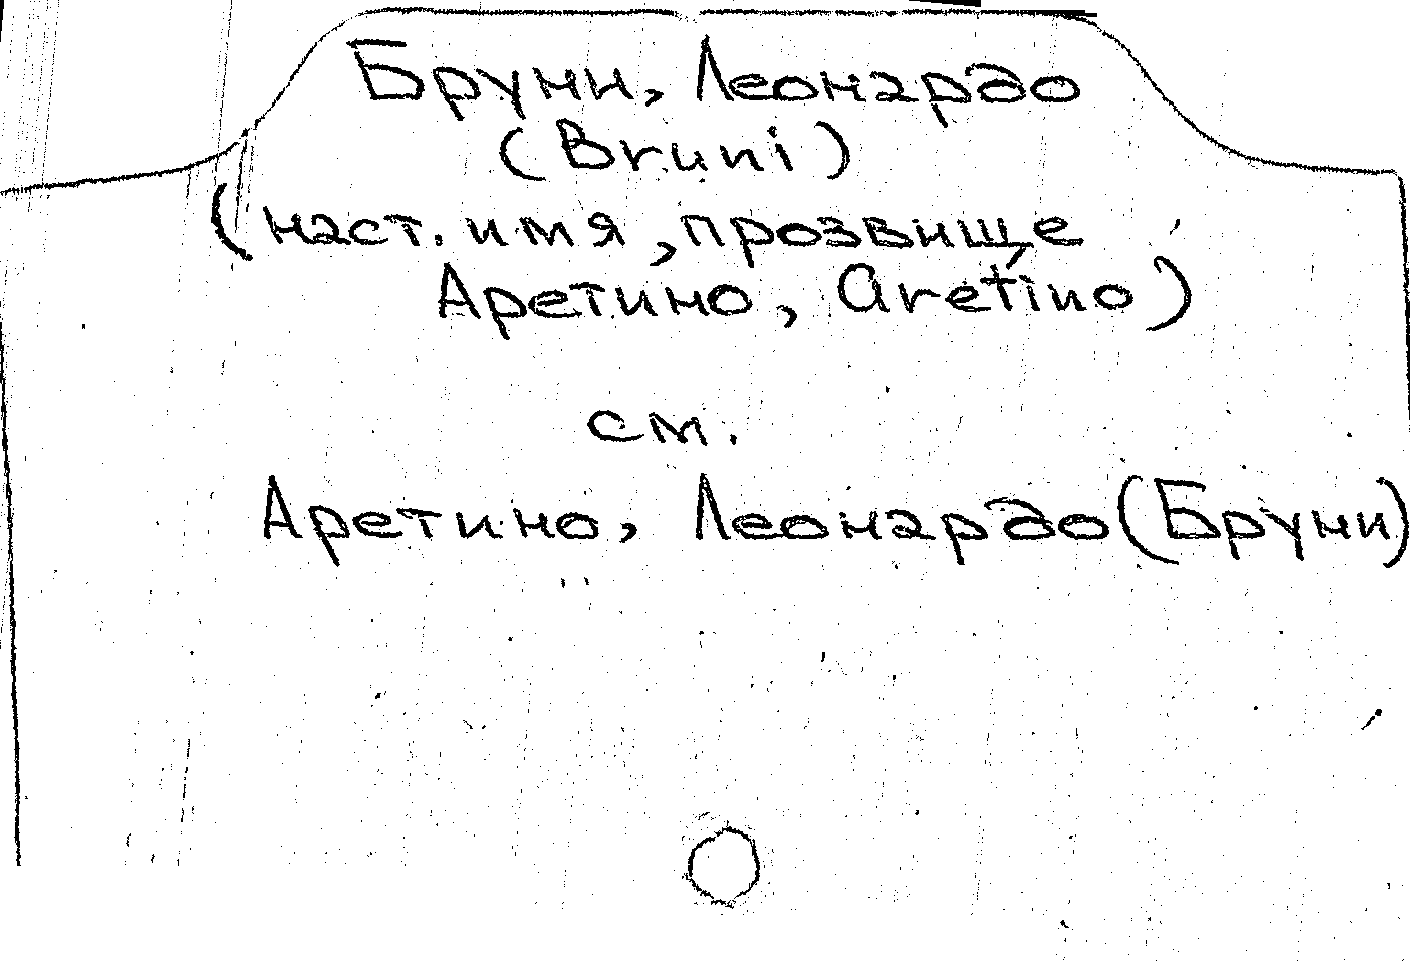 Бруни, Леонардо
(Bruni)
(наст. имя, прозвище
Аретино, Aretino)
см.
Аретино, Леонардо (Бруни)